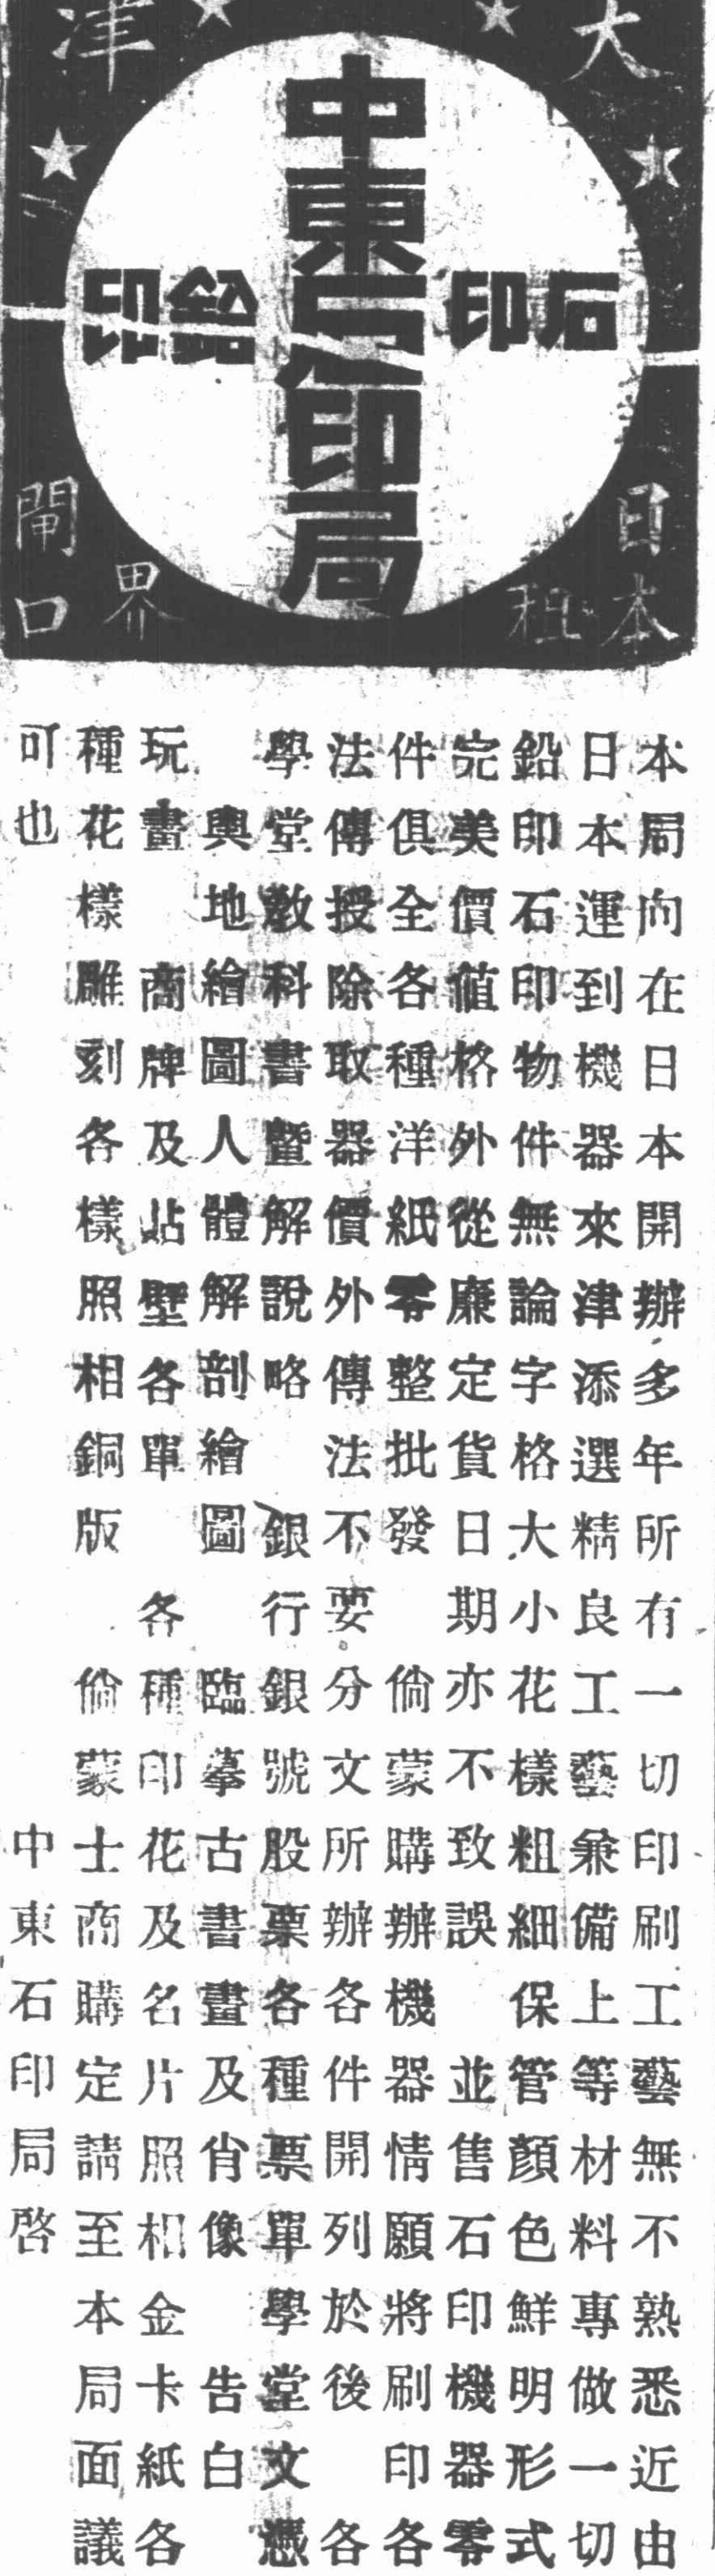 大津
中東石印局
石印
鉛印
日本租界閘口
本局向在日本開辦多年所有一切印刷工藝無不熟悉近由
日本運到機器來津添選精良工藝兼備上等材料專做一切
鉛印石印物件無論字格大小花樣粗細保管顏色鮮明形式
完美價値格外從廉定貨日期亦不致誤 並售石印機器零
件俱全各種洋紙零整批發 倘蒙購辦機器情願將刷印各
法傳授除取器價外傳法不要分文所辦各件開列於後 各
學堂敎科書暨解說略 銀行銀號股票各種票單 學堂文憑
輿地繪圖人體解剖繪圖 臨摹古書畫及肖像 告白
玩畫 商牌及貼壁各單 各種印花及名片照相金卡紙各
種花樣雕刻各樣照相銅版 倘蒙士商購定請至本局面議
可也 中東石印局啓